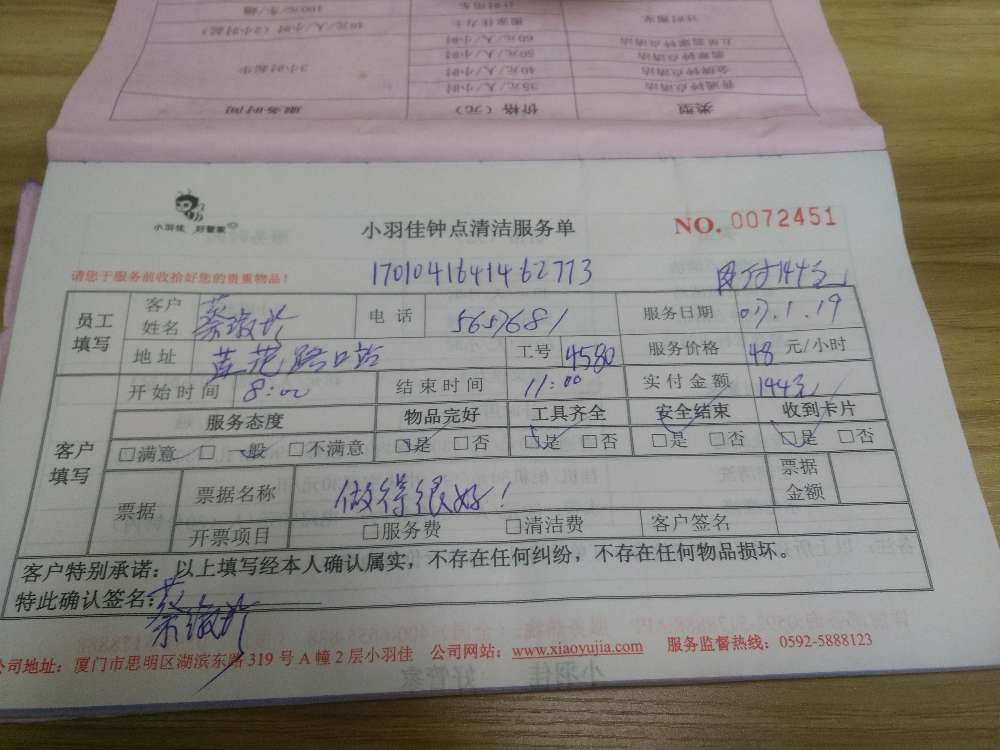 类型 价格（元） 服务时间
普通钟点清洁 35元/人/小时
金牌钟点清洁 40元/人/小时 2小时起步
翡翠钟点清洁 50元/人/小时
五星翡翠钟点清洁 60元/人/小时
小羽佳 好管家
小羽佳钟点清洁服务单
NO. 0072451
请您于服务前收拾好您的贵重物品！
1701041641462773
员工填写
客户姓名 蔡
电话 5657681
服务日期 17.1.19
地址
工号 4580
服务价格 48 元/小时
客户填写
开始时间 8:00
结束时间 11:00
实付金额 144元
服务态度 物品完好 工具齐全 安全结束 收到卡片
□满意 □一般 □不满意 □是 □否 □是 □否 □是 □否 □是 □否
票据
票据名称 做得很好！
票据金额
开票项目 □服务费 □清洁费 客户签名
客户特别承诺：以上填写经本人确认属实，不存在任何纠纷，不存在任何物品损坏。
特此确认签名：蔡
公司地址：厦门市思明区湖滨东路319号A幢2层小羽佳 公司网站：www.xiaoyujia.com 服务监督热线：0592-5888123